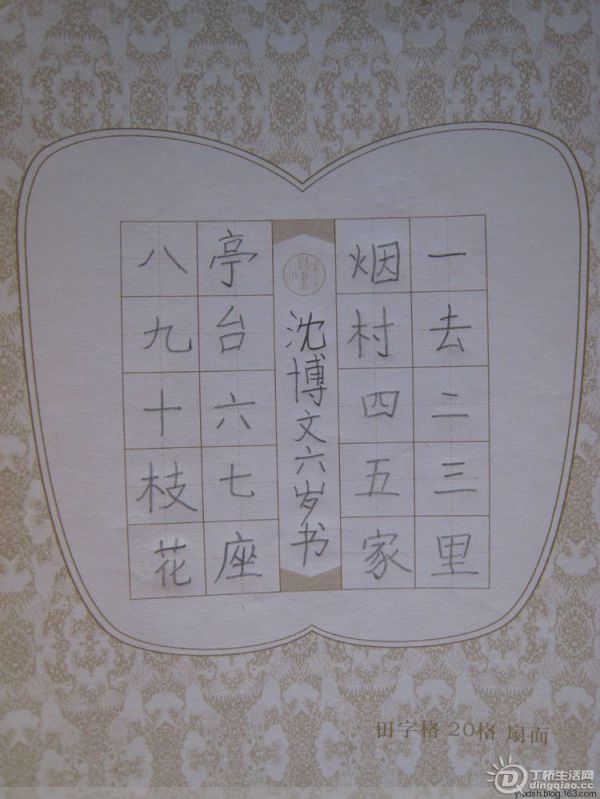 一去二三里
烟村四五家
沈博文六岁书
亭台六七座
八九十枝花
田字格 20格 扇面
丁桥生活网
dingqiao.cc